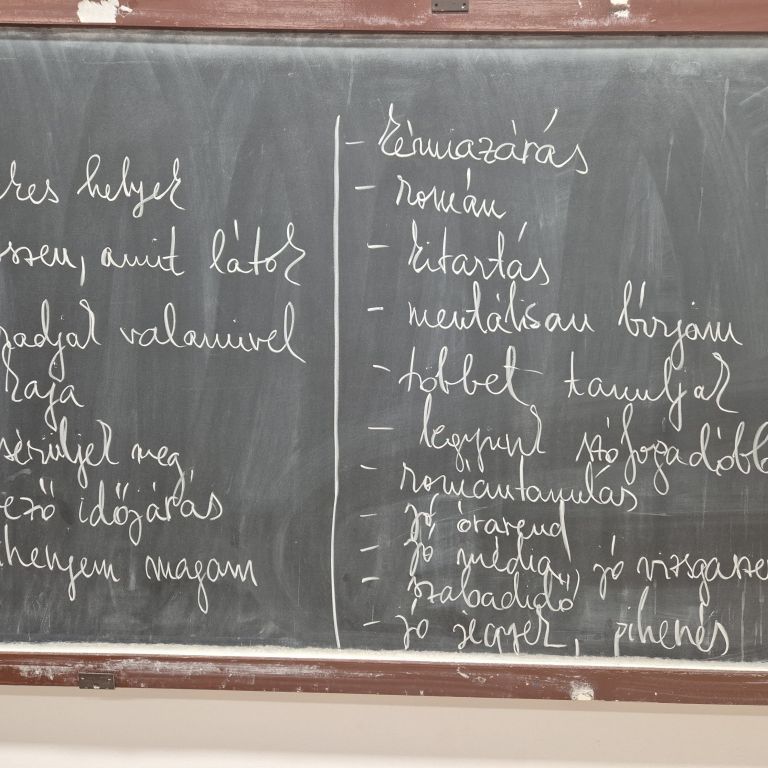 res helyek
sszen, amit látok
radjak valamivel
kaja
sérüljek meg
ező időjárás
ihenjem magam
- Témazárás
- román
- kitartás
- mentálisan bírjam
- többet tanuljak
- legyünk szófogadóbb
- romántanulás
- jó órarend
- jó média, jó vizsgasze
- szabadidő
- jó jegyek, pihenés